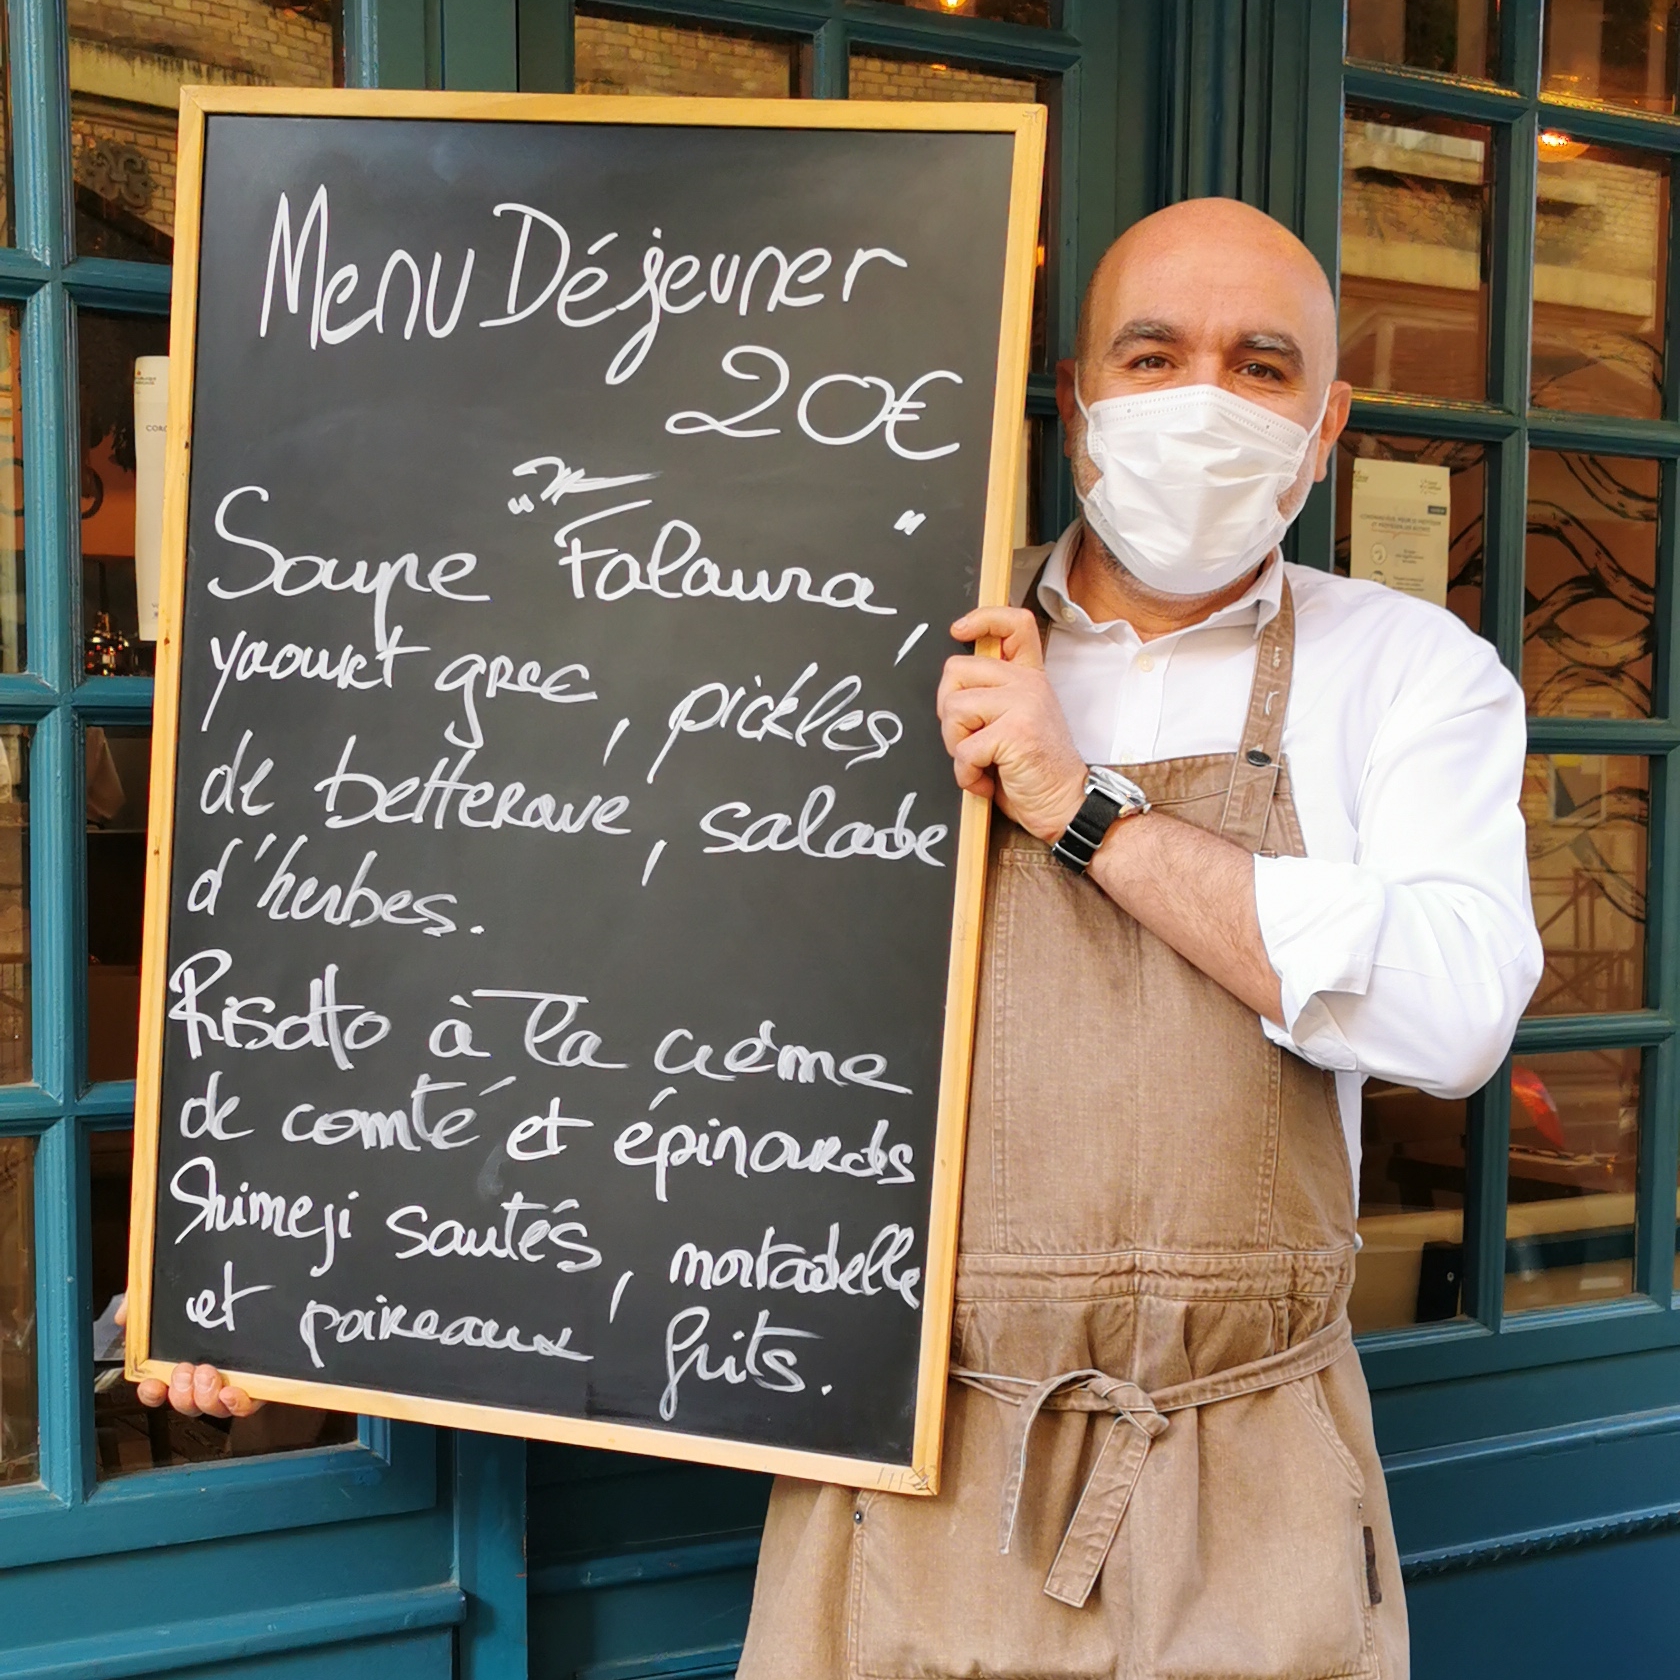 Menu Déjeuner
20€
Soupe "Falaura",
yaourt grec, pickles
de betterave, salade
d'herbes.
Risotto à la crème
de comté et épinards
Shimeji sautés, mortadelle
et poireaux frits.